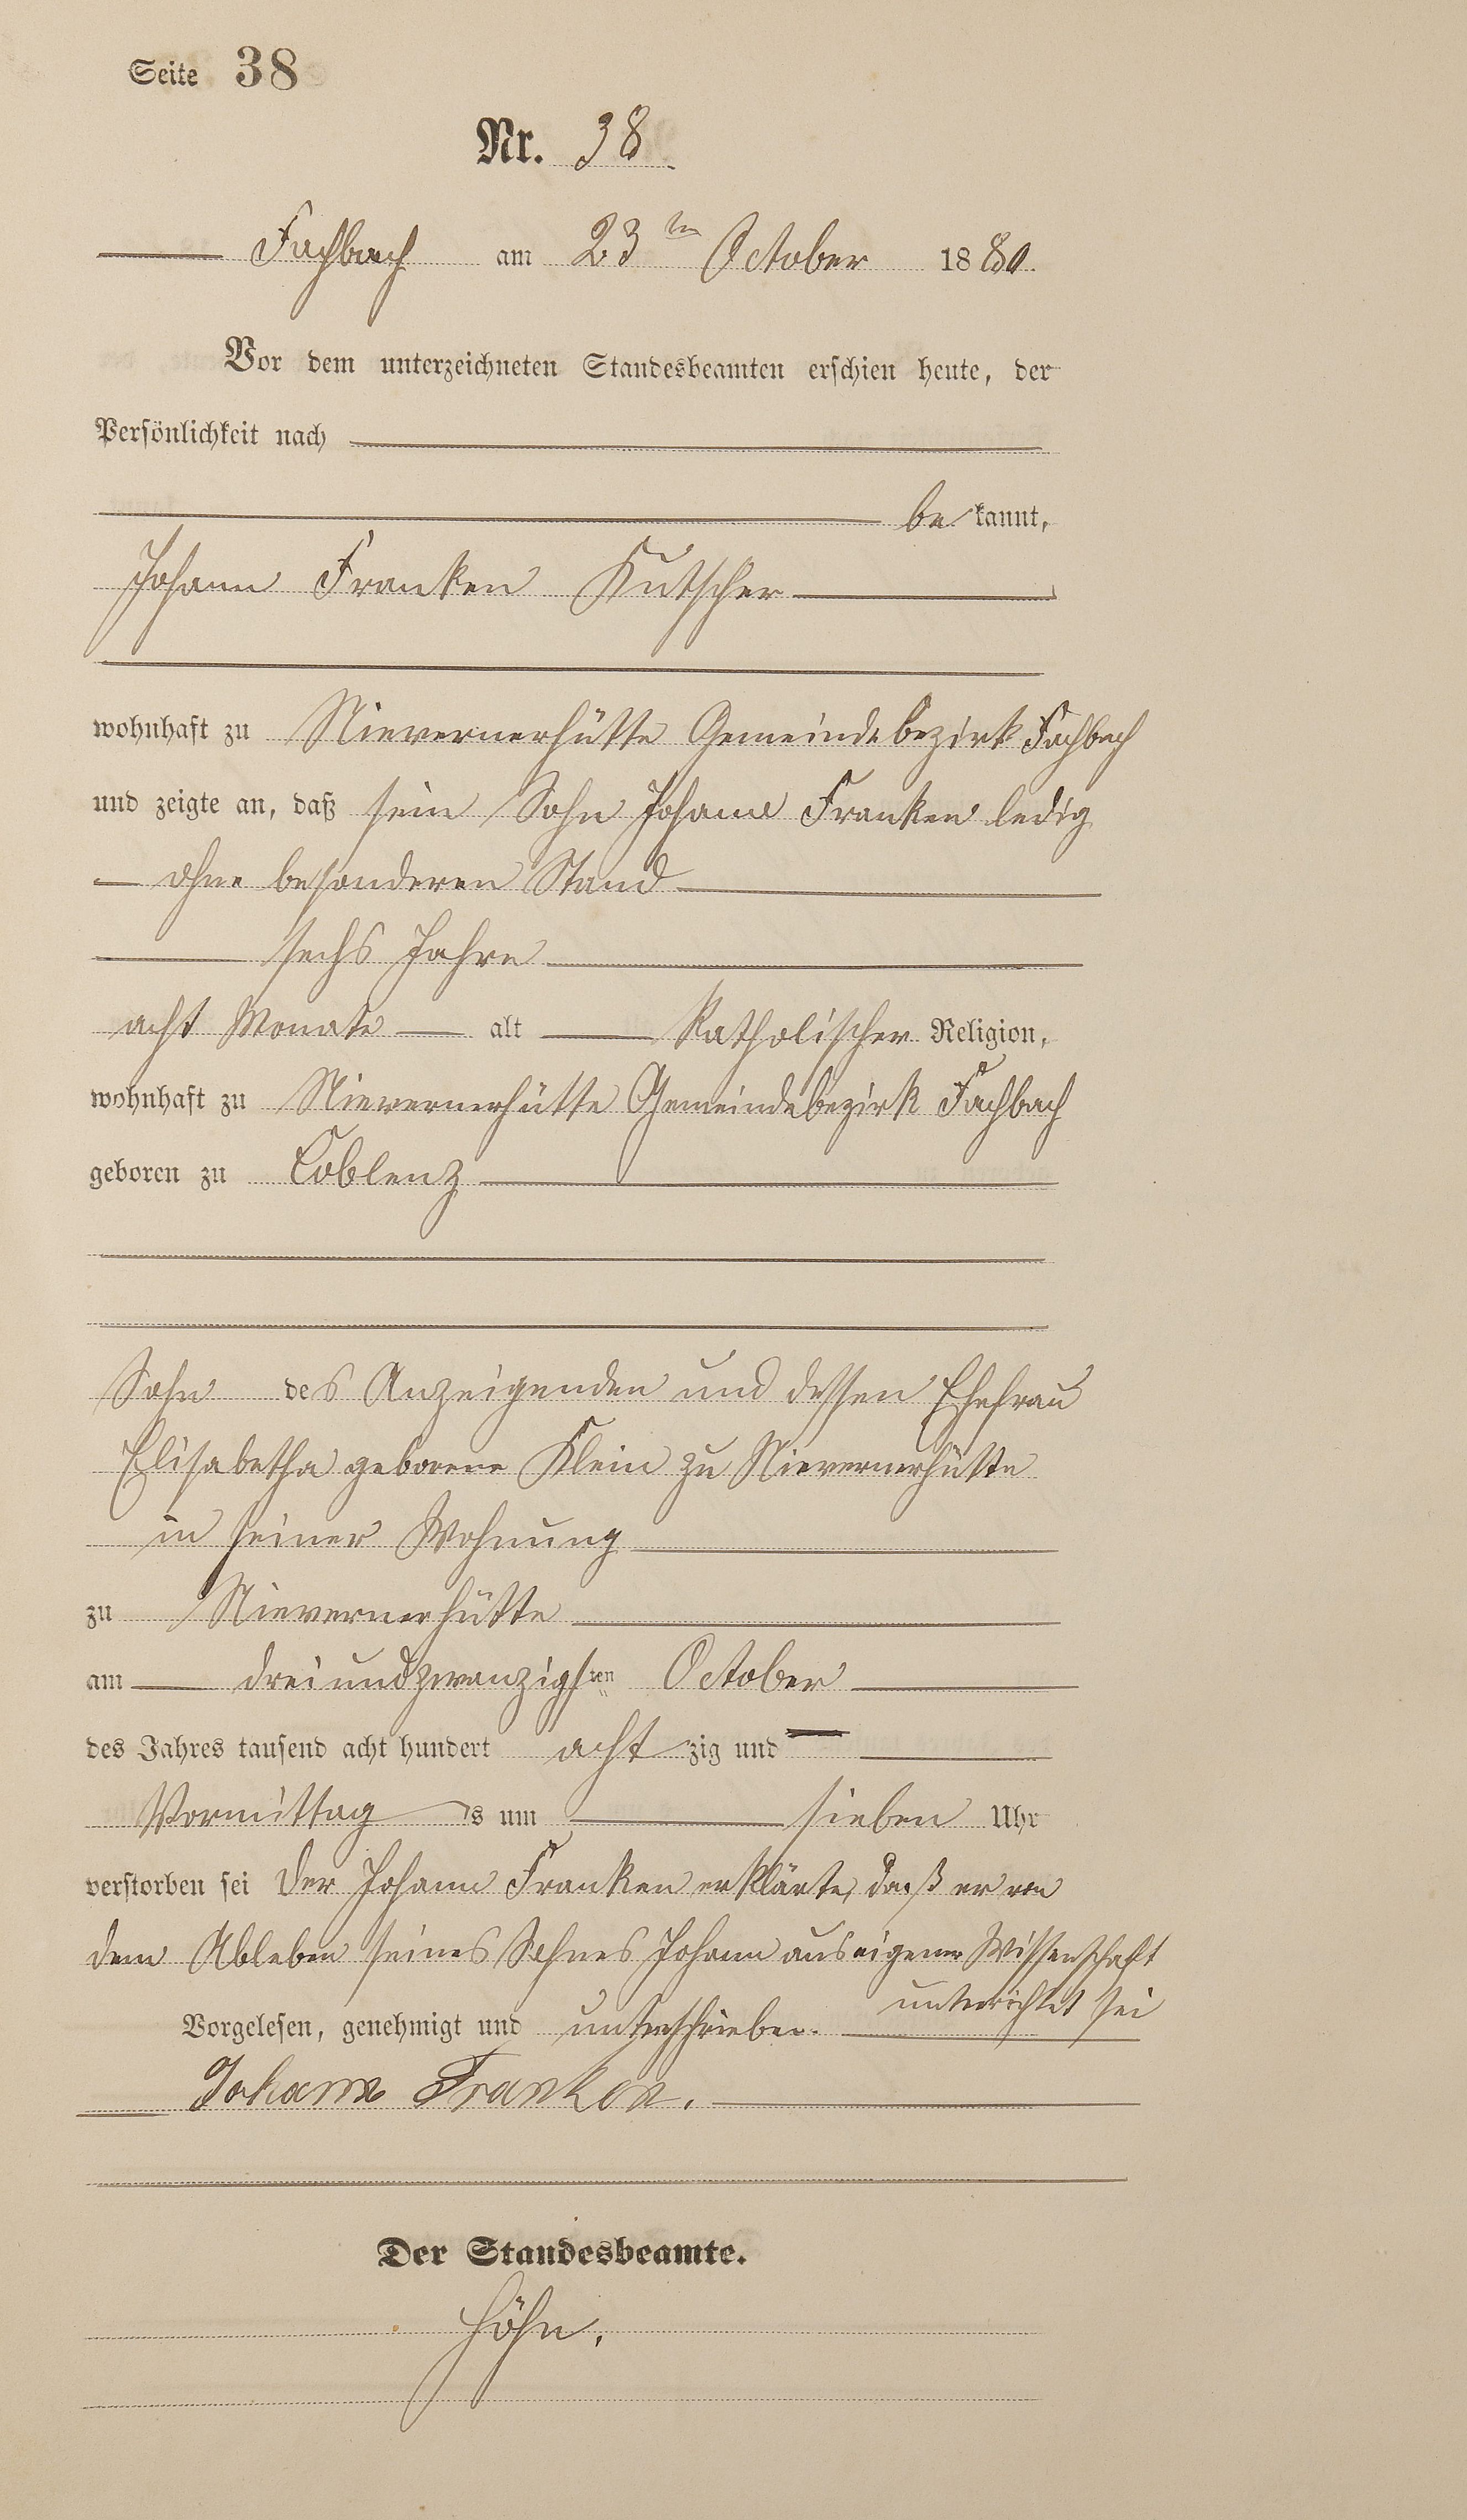 Seite 38
Nr. 38
Fachbach am 23ten October 1880.
Vor dem unterzeichneten Standesbeamten erschien heute, der
Persönlichkeit nach
be kannt,
Johann Franken Kutscher
wohnhaft zu Nievernerhütte Gemeindebezirk Fachbach
und zeigte an, daß sein Sohn Johann Franken ledig
ohne besonderen Stand
sechs Jahre
acht Monate alt Katholischer Religion,
wohnhaft zu Nievernerhütte Gemeindebezirk Fachbach
geboren zu Coblenz
Sohn des Anzeigenden und dessen Ehefrau
Elisabetha geborene Klein zu Nievernerhütte
in seiner Wohnung
zu Nievernerhütte
am dreiundzwanzigsten October
des Jahres tausend acht hundert acht zig und
Vormittag s um sieben Uhr
verstorben sei Der Johann Franken erklärte, daß er von
dem Ableben seines Sohnes Johann aus eigener Wissenschaft
unterrichtet sei
Vorgelesen, genehmigt und unterschrieben.
Johann Franken.
Der Standesbeamte.
Höhn.